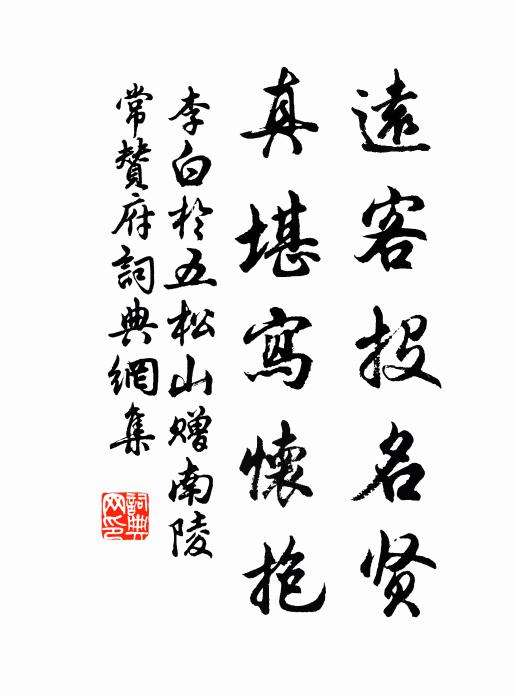 遠客投名贤
真堪寫懷抱
李白於五松山赠南陵
常贊府詞典網集
詞典网印